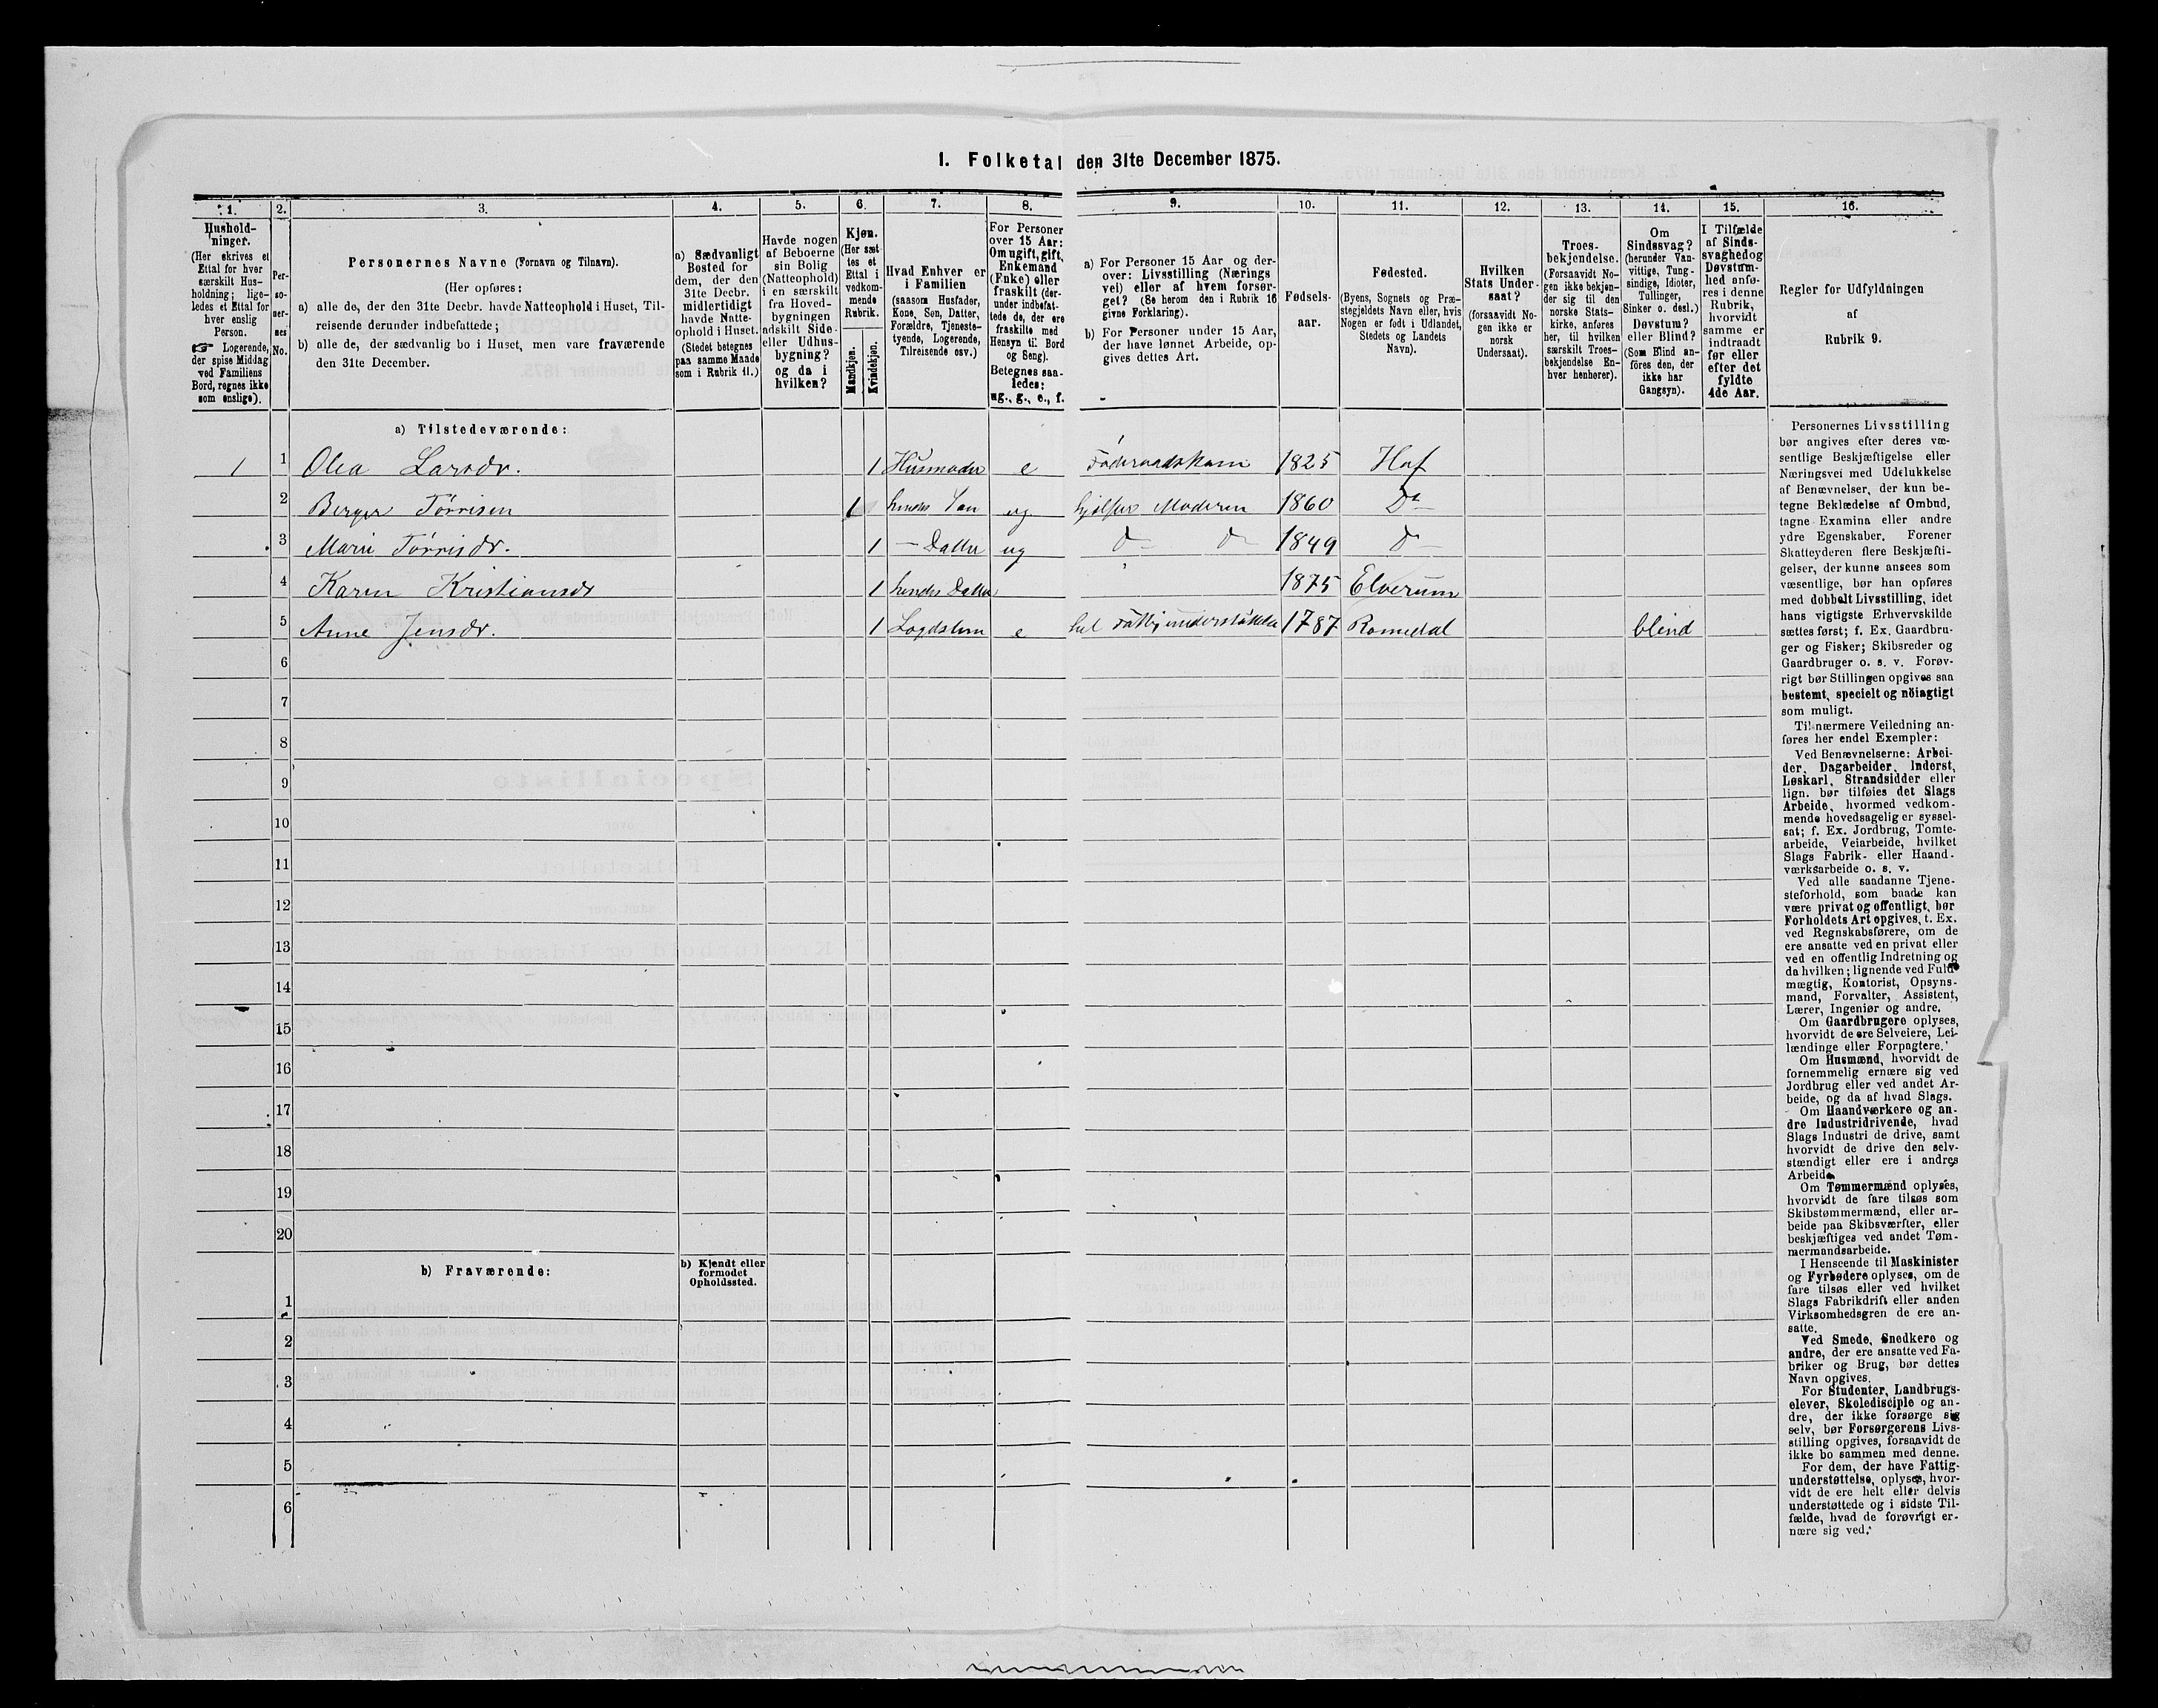 1. Folketal den 31te December 1875.
1.
2.
3.
4.
5.
6.
7.
8.
9.
10.
11.
12.
13.
14.
15.
16.
Hushold-
ninger.
(Her skrives et
Ettal for hver
særskilt Hus-
holdning; lige-
ledes et Ettal for
hver enslig
Person.
☞ Logerende,
der spise Middag
ved Familiens
Bord, regnes ikke
som enslige).
Per-
so-
ner-
nes
No.
Personernes Navne (Fornavn og Tilnavn).
(Her opføres:
a) alle de, der den 31te Decbr. havde Natteophold i Huset, Til-
reisende derunder indbefattede;
b) alle de, der sædvanlig bo i Huset, men vare fraværende
den 31te December.
a) Sædvanligt
Bosted for
dem, der den
31te Decbr.
midlertidigt
havde Natte-
ophold i Huset.
(Stedet betegnes
paa samme Maade
som i Rubrik 11.)
Havde nogen
af Beboerne
sin Bolig
(Natteophold)
i en særskilt
fra Hoved-
bygningen
adskilt Side-
eller Udhus-
bygning?
og da i
hvilken?
Kjøn.
(Her sæt
tes et
Ettal i
vedkom-
mende
Rubrik.
Mandkjøn.
Kvindekjøn.
Hvad Enhver er
i Familien
(saasom Husfader,
Kone, Søn, Datter,
Forældre, Tjeneste-
tyende, Logerende,
Tilreisende osv.)
For Personer
over 15 Aar:
Om ugift, gift,
Enkemand
(Enke) eller
fraskilt (der-
under indbefat-
tede de, der ere
fraskilte med
Hensyn til Bord
og Seng).
Betegnes saa-
ledes:
ug., g., e., f.
a) For Personer 15 Aar og der-
over: Livsstilling (Nærings
vei) eller af hvem forsør-
get? (Se herom den i Rubrik 16
givne Forklaring).
b) For Personer under 15 Aar,
der have lønnet Arbeide, op-
gives dettes Art.
Fødsels-
aar.
Fødested.
(Byens, Sognets og Præ-
stegjeldets Navn eller, hvis
Nogen er født i Udlandet,
Stedets og Landets
Navn).
Hvilken
Stats Under-
saat?
(forsaavidt No-
gen ikke er
norsk
Undersaat).
Troes-
bekjendelse.
(Forsaavidt No-
gen ikke bekjen-
der sig til den
norske Stats-
kirke, anføres
her, til hvilken
særskilt Troes-
bekjendelse En-
hver henhører).
Om
Sindssvag?
(herunder Van-
vittige, Tung-
sindige, Idioter,
Tullinger,
Sinker o. desl.)
Døvstum?
eller Blind?
(Som Blind an-
føres den, der
ikke har
Gangsyn).
I Tilfælde
af Sinds-
svaghed og
Døvstum-
hed anfø-
res i denne
Rubrik,
hvorvidt
samme er
indtraadt
før eller
efter det
fyldte
4de Aar.
Regler for Udfyldningen
af
Rubrik 9.
a) Tilstedeværende:
1 1 Olea Larsdr. 1 Husmoder e Føderaadskone 1825 Hof
2 Berger Tørrisen 1 hendes Søn ug hjelper Moderen 1860 Do
3 Marie Tørrisdr. 1 — Datter ug D D 1849 D
4 Karen Kristiansdr 1 hendes Datter 1875 Elverum
5 Anne Jensdr. 1 e 1787 Romedal blind
6
7
8
9
10
11
12
13
14
15
16
17
18
19
20
b) Fraværende:
b) Kjendt eller
formodet
Opholdssted.
1
2
3
4
5
6
Personernes Livsstilling
bør angives efter deres væ-
sentlige Beskjæftigelse eller
Næringsvei med Udelukkelse
af Benævnelser, der kun be-
tegne Beklædelse af Ombud,
tagne Examina eller andre
ydre Egenskaber. Forener
Skatteyderen flere Beskjæfti-
gelser, der kunne ansees som
væsentlige, bør han opføres
med dobbelt Livsstilling, idet
hans vigtigste Erhvervskilde
sættes først; f. Ex. Gaardbru-
ger og Fisker; Skibsreder og
Gaardbruger o. s. v. Forøv-
rigt bør Stillingen opgives saa
bestemt, specielt og nöiagtigt
som muligt.
Til nærmere Veiledning an-
føres her endel Exempler:
Ved Benævnelserne: Arbei-
der, Dagarbeider, Inderst,
Løskarl, Strandsidder eller
lign. bør tilføies det Slags
Arbeide, hvormed vedkom-
mende hovedsagelig er syssel-
sat; f. Ex. Jordbrug, Tomte-
arbeide, Veiarbeide, hvilket
Slags Fabrik- eller Haand-
værksarbeide o. s. v.
Ved alle saadanne Tjene-
steforhold, som baade kan
være privat og offentligt, bør
Forholdets Art opgives, t. Ex.
ved Regnskabsførere, om de
ere ansatte ved en privat eller
ved en offentlig Indretning og
da hvilken; lignende ved Fuld-
mægtig, Kontorist, Opsyns-
mand, Forvalter, Assistent,
Lærer, Ingeniør og andre.
Om Gaardbrugere oplyses,
hvorvidt de ere Selveiere, Lei-
lændinge eller Forpagtere.
Om Husmænd, hvorvidt de
fornemmelig ernære sig ved
Jordbrug eller ved andet Ar-
beide, og da af hvad Slags.
Om Haandværkere og an-
dre Industridrivende, hvad
Slags Industri de drive, samt
hvorvidt de drive den selv-
stændigt eller ere i andres
Arbeide.
Om Tømmermænd oplyses,
hvorvidt de fare tilsøs som
Skibstømmermænd, eller ar-
beide paa Skibsværfter, eller
beskjæftiges ved andet Tøm-
mermandsarbeide.
I Henseende til Maskinister
og Fyrbødere oplyses, om de
fare tilsøs eller ved hvilket
Slags Fabrikdrift eller anden
Virksomhedsgren de ere an-
satte.
Ved Smede, Snedkere og
andre, der ere ansatte ved Fa-
briker og Brug, bør dettes
Navn opgives.
For Studenter, Landbrugs-
elever, Skoledisciple og an-
dre, der ikke forsørge sig
selv, bør Forsørgerens Livs-
stilling opgives, forsaavidt de
ikke bo sammen med denne.
For dem, der have Fattig-
understøttelse, oplyses, hvor-
vidt de ere helt eller delvis
understøttede og i sidste Til-
fælde, hvad de forøvrigt er-
nære sig ved.